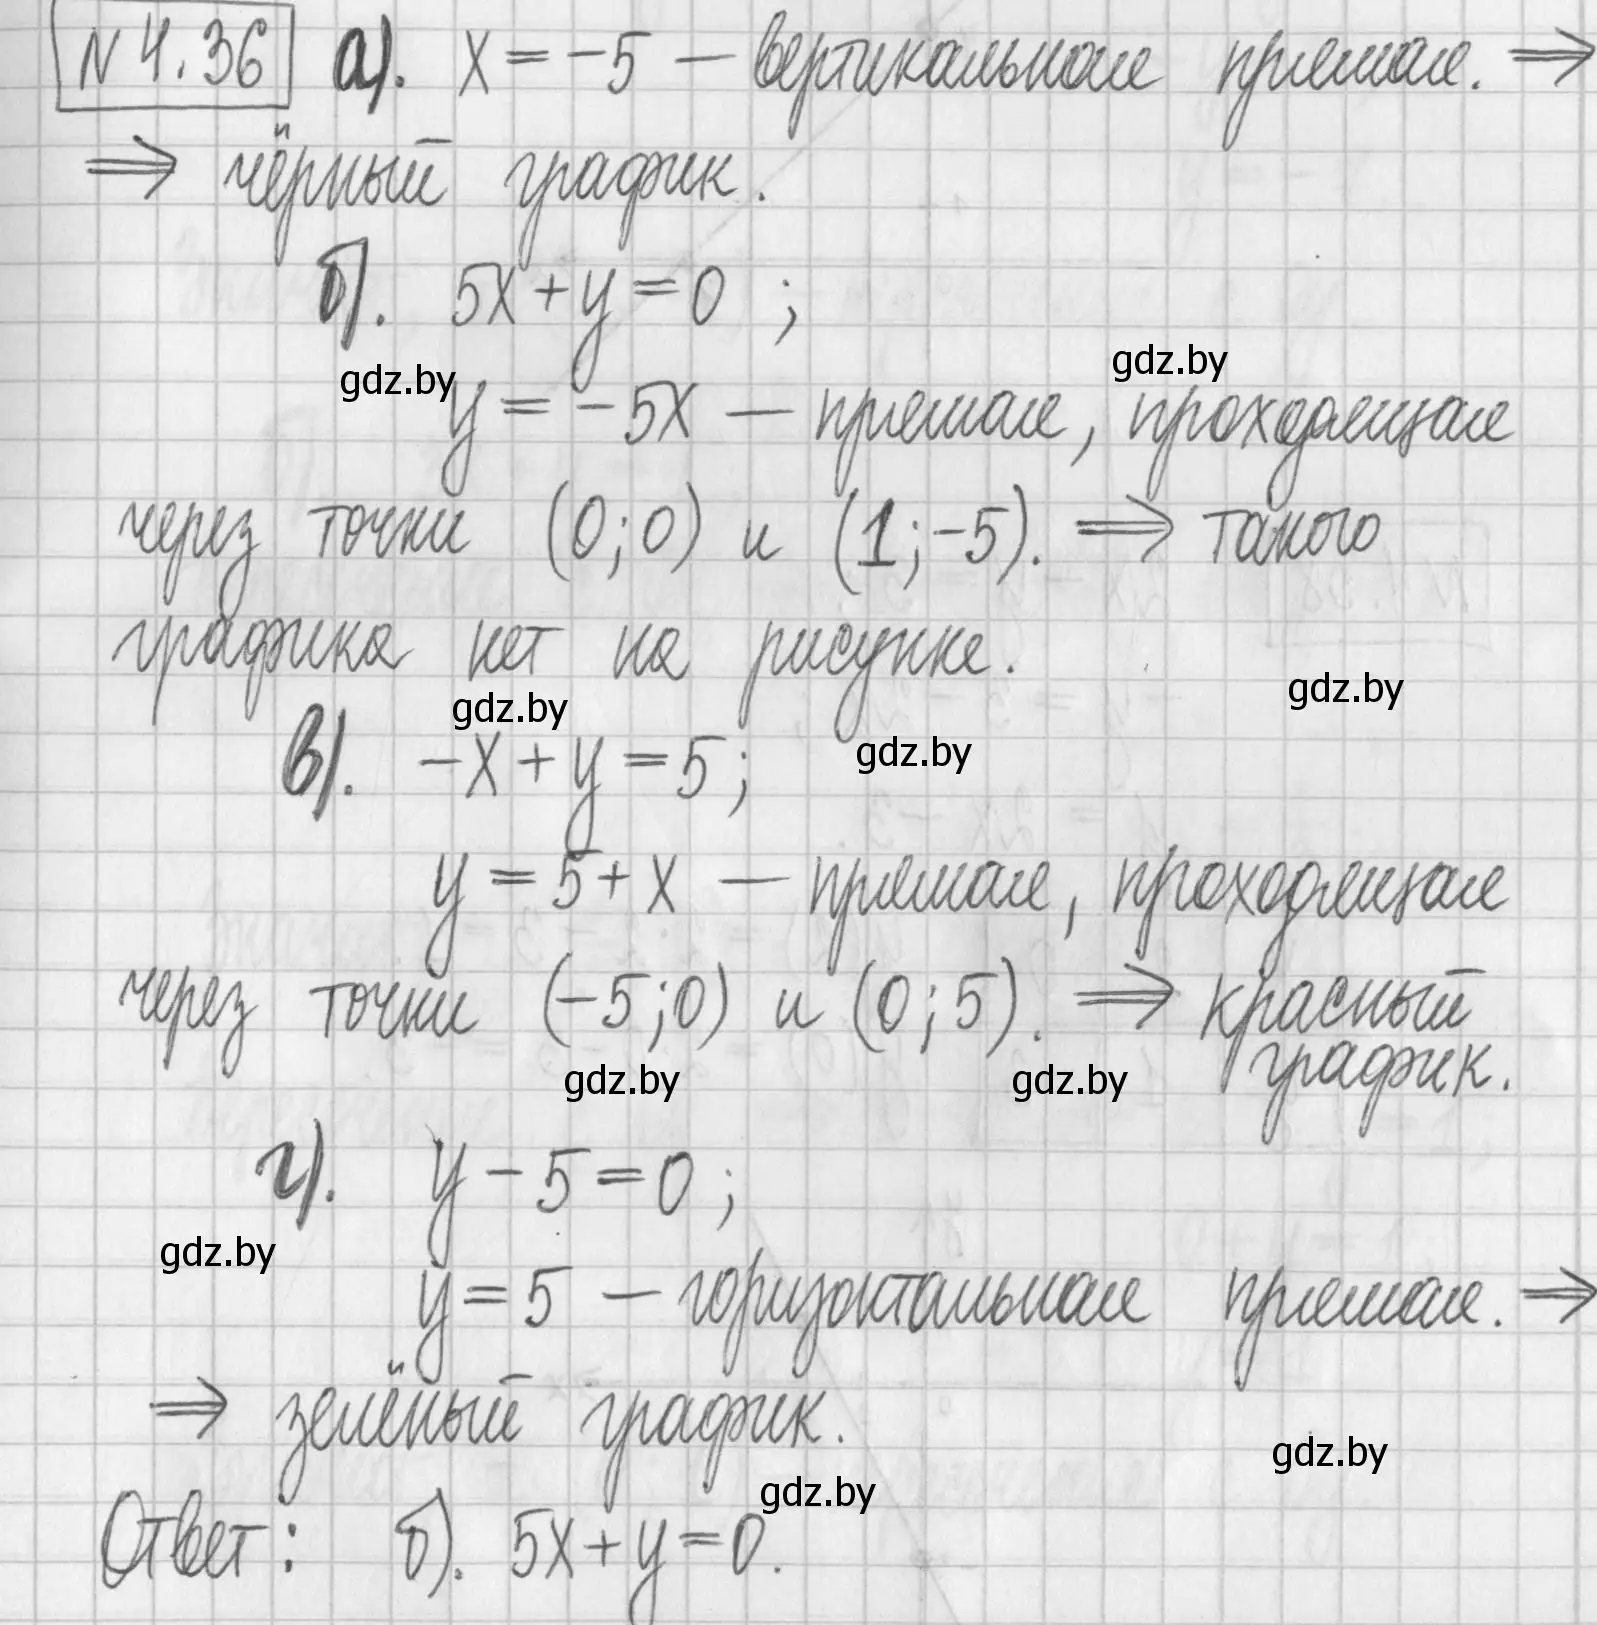 N 4.36 а). x = -5 — вертикальная прямая. ⇒
⇒ чёрный график.
б). 5x + y = 0 ;
gdz.by
gdz.by
y = -5x — прямая, проходящая
через точки (0;0) и (1;-5). ⇒ такого
графика нет на рисунке.
gdz.by
gdz.by
в). -x + y = 5;
gdz.by
y = 5 + x — прямая, проходящая
через точки (-5;0) и (0;5). ⇒ красный
график.
gdz.by
gdz.by
г). y - 5 = 0 ;
gdz.by
y = 5 — горизонтальная прямая. ⇒
⇒ зелёный график.
gdz.by
gdz.by
Ответ: б). 5x + y = 0.